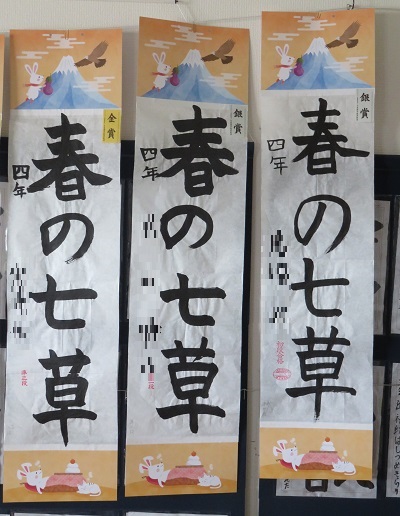 金賞
春の七草
四年
銀賞
春の七草
四年
銀賞
春の七草
四年